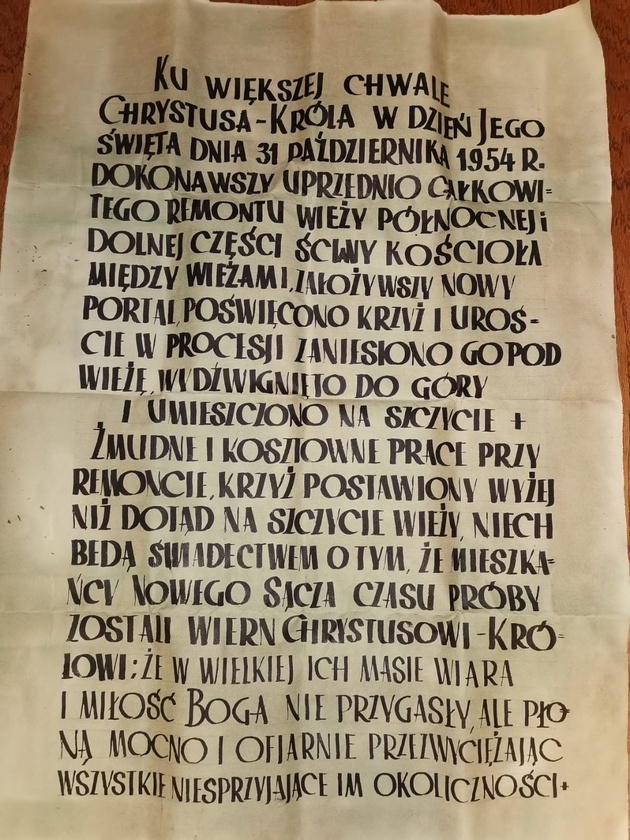 KU WIĘKSZEJ CHWALE
CHRYSTUSA-KRÓLA W DZIEŃ JEGO
ŚWIĘTA DNIA 31 PAŹDZIERNIKA 1954 R.
DOKONAWSZY UPRZEDNIO CAŁKOWI=
TEGO REMONTU WIEŻY PÓŁNOCNEJ i
DOLNEJ CZĘŚCI ŚCIANY KOŚCIOŁA
MIĘDZY WIEŻAMI, ZAŁOŻYWSZY NOWY
PORTAL, POŚWIĘCONO KRZYŻ I UROŚ-
CIE W PROCESJI ZANIESIONO GO POD
WIEŻĘ, WYDŹWIGNIĘTO DO GÓRY
I UMIESZCZONO NA SZCZYCIE +
ŻMUDNE I KOSZTOWNE PRACE PRZY
REMONCIE, KRZYŻ POSTAWIONY WYŻEJ
NIŻ DOTĄD NA SZCZYCIE WIEŻY, NIECH
BĘDĄ ŚWIADECTWEM O TYM, ŻE MIESZKA=
ŃCY NOWEGO SĄCZA CZASU PRÓBY
ZOSTALI WIERNI CHRYSTUSOWI-KRÓ=
LOWI; ŻE W WIELKIEJ ICH MASIE WIARA
I MIŁOŚĆ BOGA NIE PRZYGASŁY, ALE PŁO-
NĄ MOCNO I OFIARNIE PRZEZWYCIĘŻAJĄC
WSZYSTKIE NIESPRZYJAJĄCE IM OKOLICZNOŚCI+